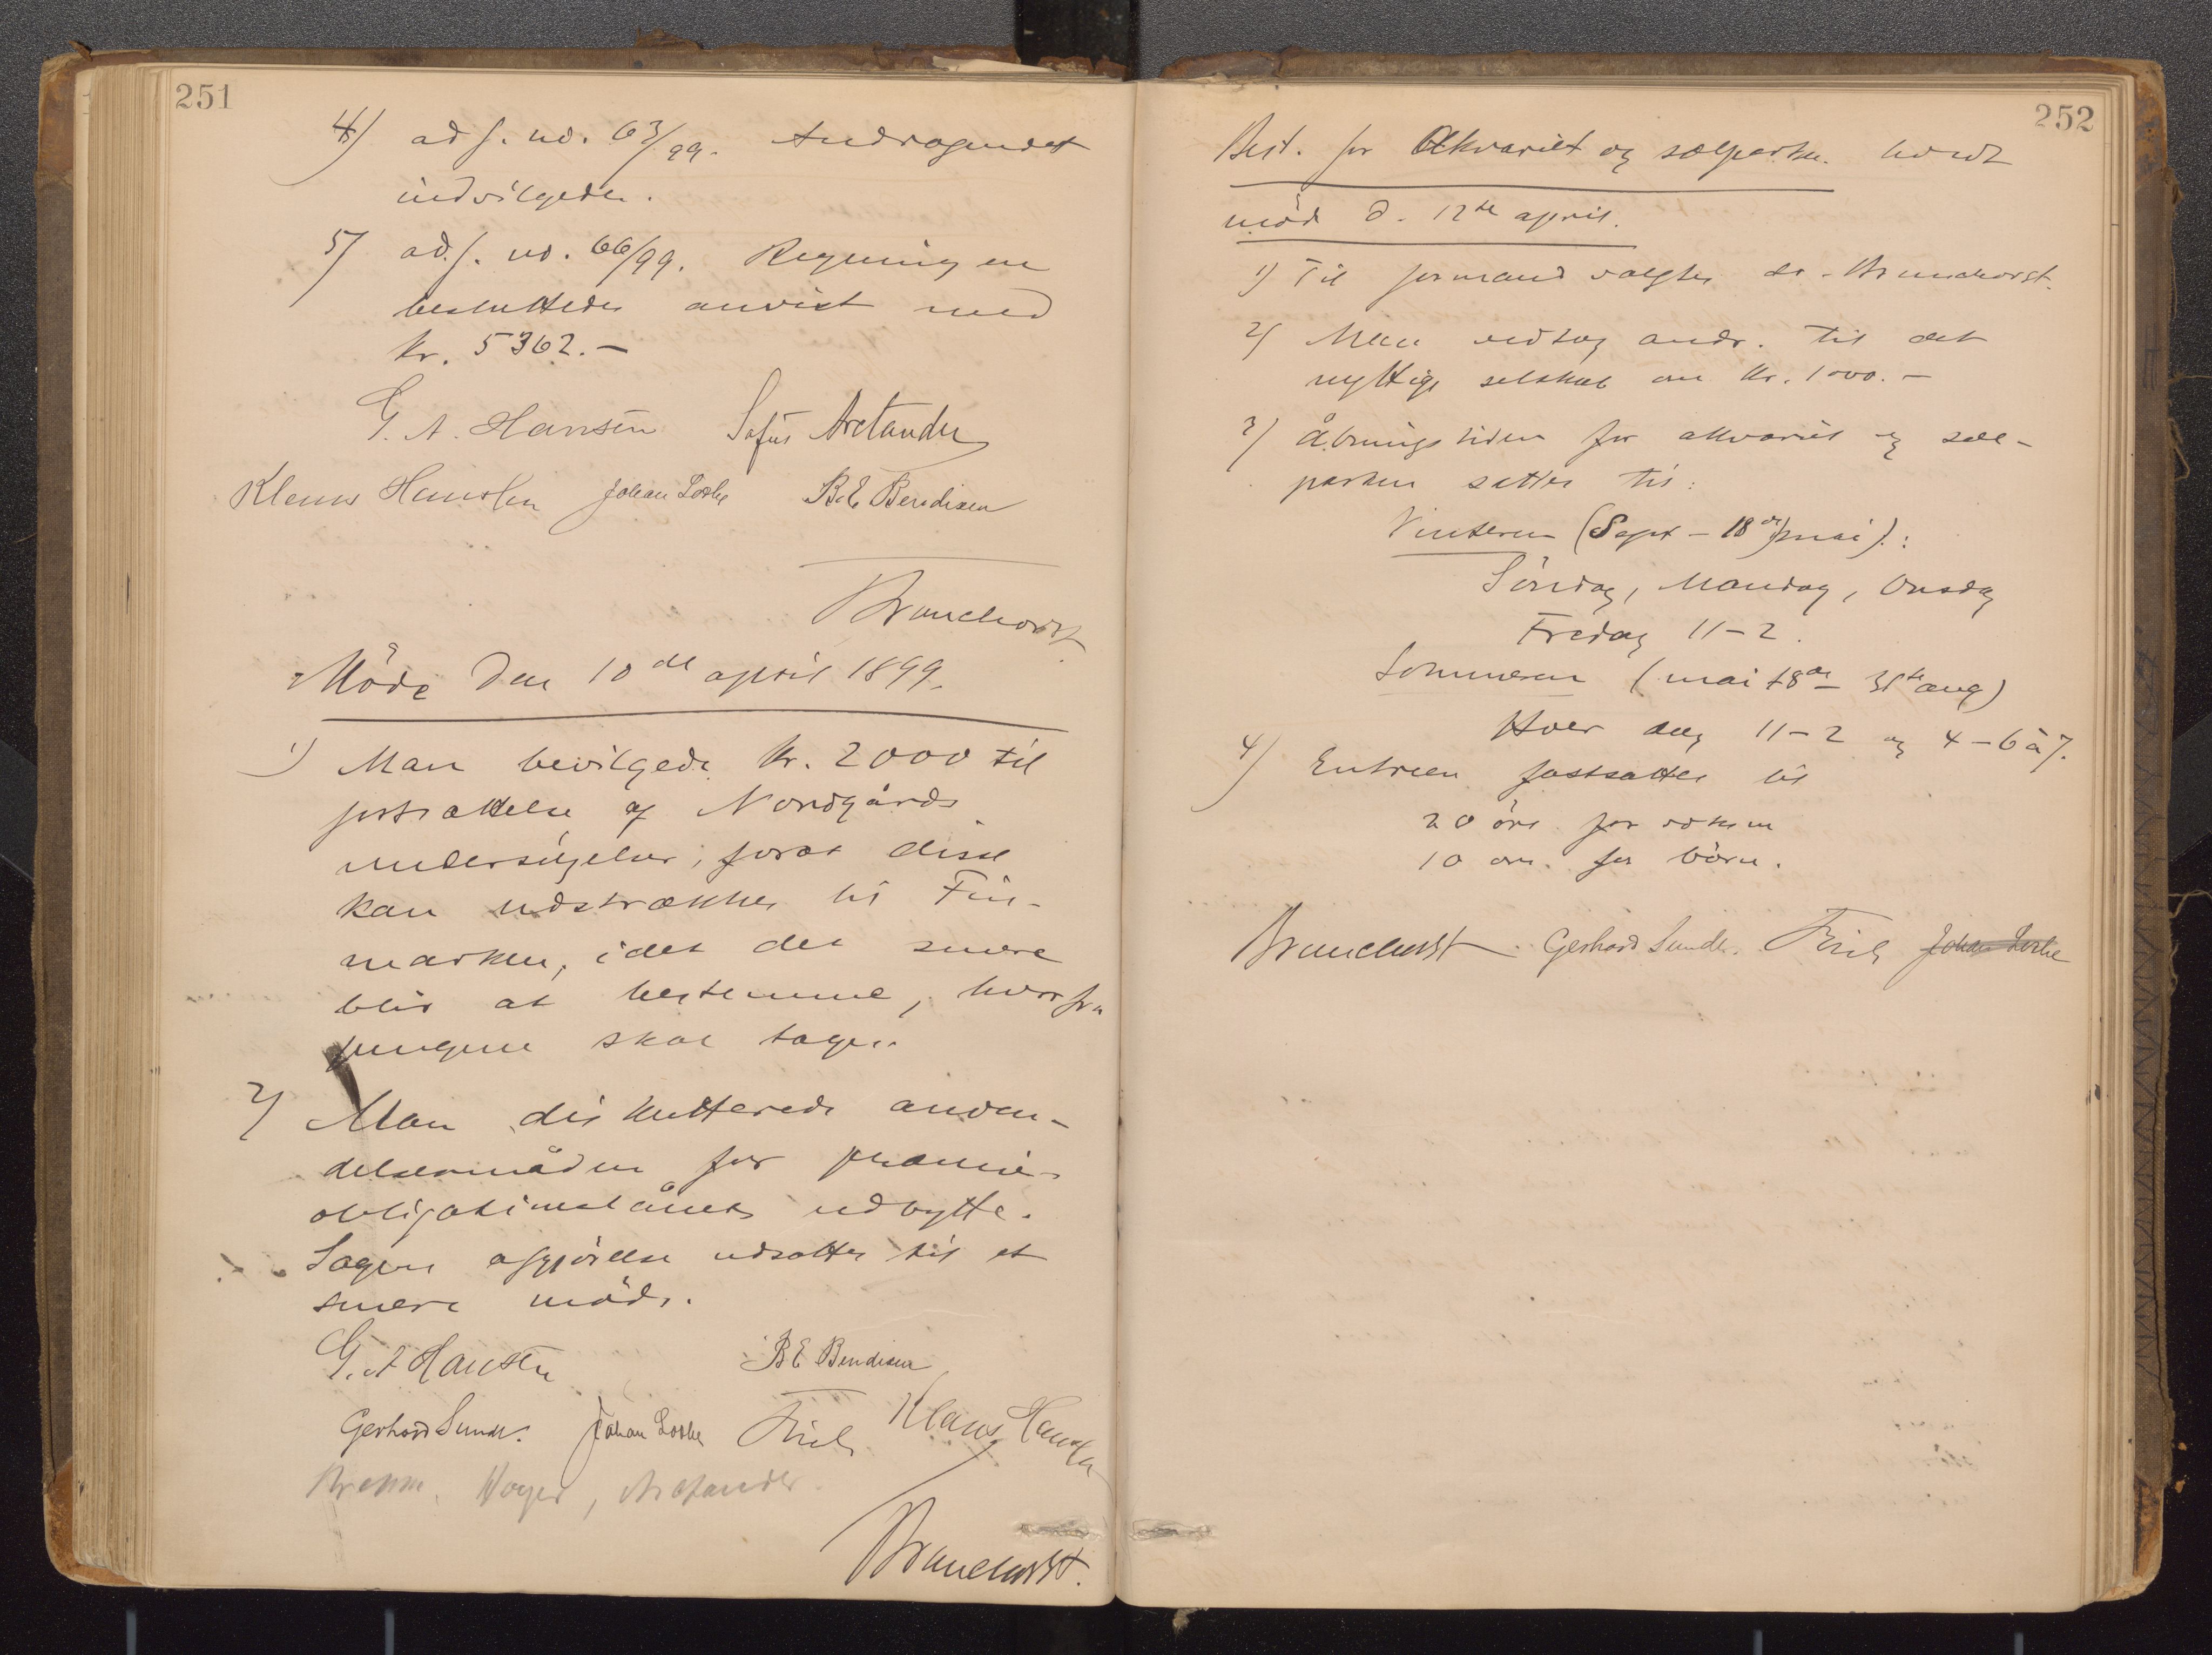 251
4) ad j. no. 63/99. Andragendet
indvilgedes.
5) ad j. no. 66/99. Regningen
besluttedes anvist med
kr. 5362.—
G. A. Hansen Sofus Arctander
Klaus Hanssen Johan Lothe B.E. Bendixen
Brunchorst
Møde den 10de april 1899.
1) Man bevilgede kr. 2000 til
fortsættelse af Nordgårds
undersøgelser, forat disse
kan udstrækkes til Fin-
marken, idet det senere
blir at bestemme, hvorfra
pengene skal tages.
2) Man diskutterede anven-
delsesmåden for præmie-
obligationslånets udbytte.
Sagens afgjörelse udsattes til et
senere møde.
G. A Hansen BE Bendixen
Gerhard Sunde. Johan Lothe Friele Klaus Hanssen
Arctander
Brunchorst.
252
Best. for Akvariet og sælparken. havde
möde d. 12te april.
1) Til formand valgtes dr. Brunchorst.
2) Man vedtog andr. til det
nyttige selskab om kr. 1000.—
3) Åbningstiden for akvariet og sæl-
parken sattes til:
Vinteren (Sept – 18de mai):
Söndag, Mandag, Onsdag
Fredag 11–2.
Sommeren (mai 18de – 31te aug)
Hver dag 11–2 og 4–6 à 7.
4) Entreen fastsattes til
20 öre for voksne
10 öre. for börn.
Brunchorst Gerhard Sunde. Friele Johan Lothe